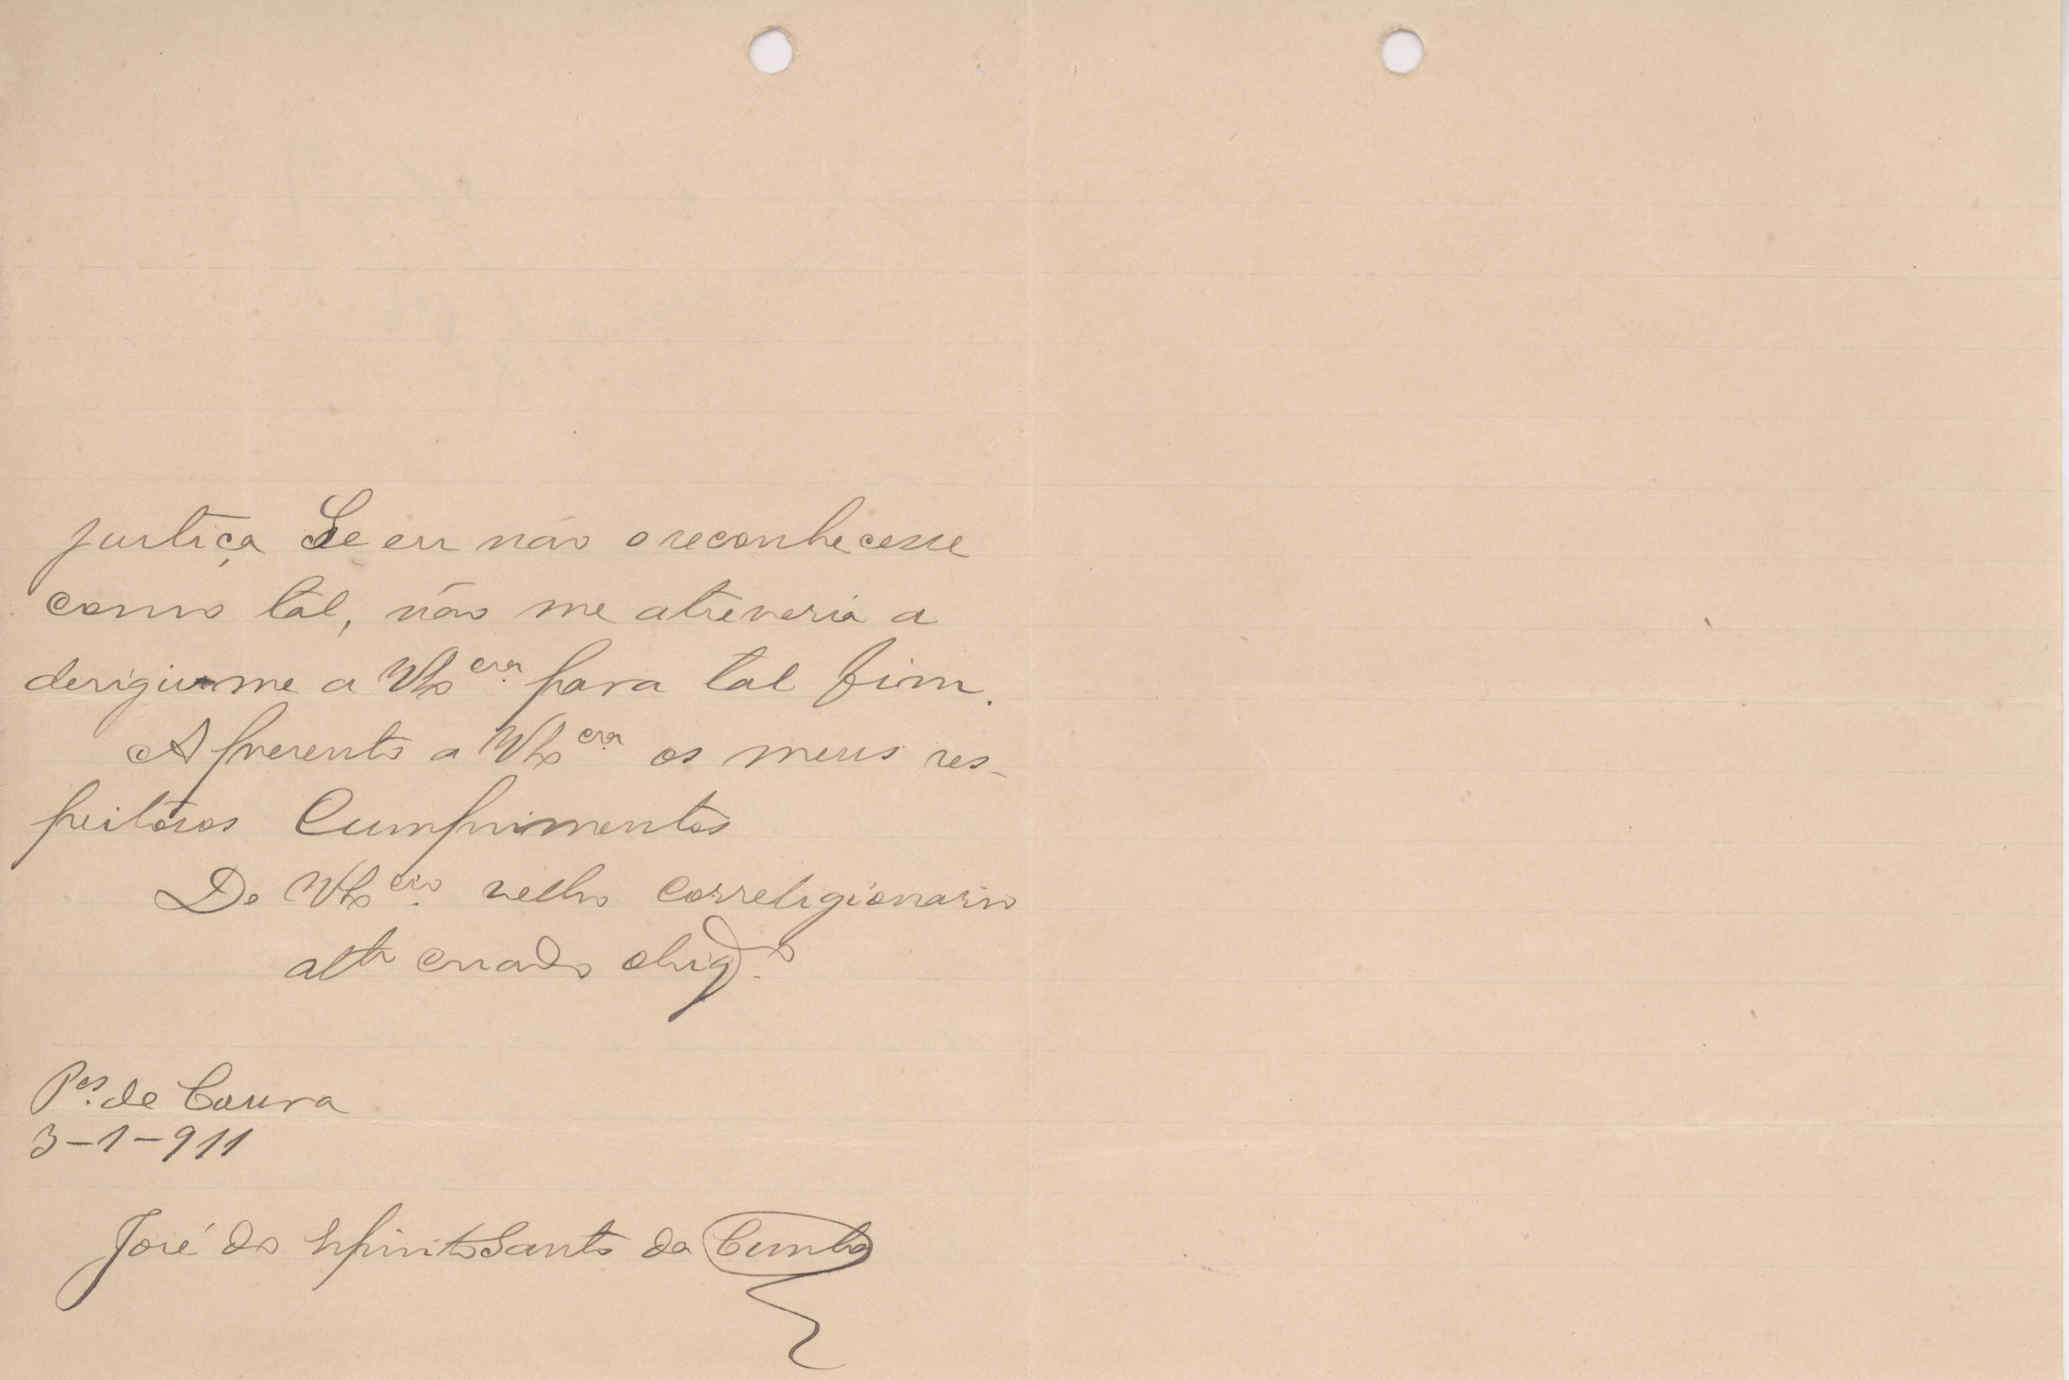 justiça Se eu não o reconhecesse
como tal, não me atreveria a
derigir me a V. Ex.cia para tal fim.
Apresento a V. Ex.cia os meus res-
peitosos Cumprimentos
De V. Ex.cia velho correligionario
att.o criado obrig.do
P.es de Coura
3-1-911
José do Espirito Santo da Cunha